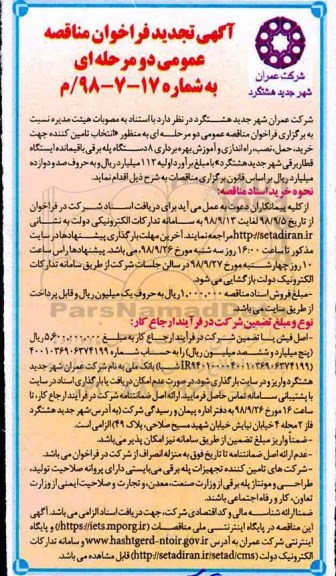 آگهی تجدید فراخوان مناقصه
عمومی دو مرحله ای
به شماره ۱۷-۷-۹۸/م
شرکت عمران
شهر جدید هشتگرد
شرکت عمران شهر جدید هشتگرد در نظر دارد با استناد به مصوبات هیئت مدیره نسبت
به برگزاری فراخوان مناقصه عمومی دو مرحله ای به منظور «انتخاب تامین کننده جهت
خرید، حمل، نصب، راه اندازی و آموزش بهره برداری ۸ دستگاه پله برقی باقیمانده ایستگاه
قطار برقی شهر جدید هشتگرد» با مبلغ برآورد اولیه ۱۱۲ میلیارد ریال و به حروف صد و دوازده
میلیارد ریال بر اساس قانون برگزاری مناقصات به شرح ذیل اقدام نماید.
نحوه خرید اسناد مناقصه:
از کلیه پیمانکاران دعوت به عمل می آید برای دریافت اسناد شرکت در فراخوان
از تاریخ ۹۸/۹/۵ لغایت ۹۸/۹/۱۳ به سامانه تدارکات الکترونیکی دولت به نشانی
http://setadiran.ir مراجعه نمایند. آخرین مهلت بارگذاری پیشنهادها در سایت
مذکور تا ساعت ۱۶:۰۰ روز سه شنبه مورخ ۹۸/۹/۲۶ می باشد. پیشنهادها راس ساعت
۱۰ روز چهارشنبه مورخ ۹۸/۹/۲۷ در سالن جلسات شرکت از طریق سامانه تدارکات
الکترونیک دولت بازگشایی می شود.
-مبلغ فروش اسناد مناقصه ۱،۰۰۰،۰۱۰ ریال به حروف یک میلیون ریال و قابل پرداخت
از طریق سایت می باشد.
نوع و مبلغ تضمین شرکت در فرآیند ارجاع کار:
-اصل فیش یا تضمین شرکت در فرآیند ارجاع کار به مبلغ ۵،۶۰۰،۰۰۰،۰۰۰ ریال
(پنج میلیارد و ششصد میلیون ریال) را به حساب شماره
بانک ملی به نام شرکت عمران شهر جدید
هشتگرد واریز و در سایت بارگذاری شود. در صورت عدم امکان دریافت یا بارگذاری اسناد در سایت
با پشتیبانی سامانه تماس حاصل فرمایید. ارائه اصل ضمانتنامه شرکت در فرآیند ارجاع کار، تا
ساعت ۱۶ مورخ ۹۸/۹/۲۶ به دفتر اداره پیمان و رسیدگی شرکت (به آدرس: شهر جدید هشتگرد
فاز ۲ محله ۴ خیابان نیایش خیابان شهید مسیح صلاحی، پلاک ۴۹) الزامی است.
-ضمناً واریز مبلغ تضمین از طریق سامانه نیز امکان پذیر می باشد.
-عدم ارائه اصل ضمانتنامه تا تاریخ فوق به منزله انصراف از شرکت در فراخوان می باشد.
-شرکت های تامین کننده تجهیزات پله برقی می بایستی دارای پروانه صلاحیت تولید،
طراحی و مونتاژ پله برقی از وزارت صنعت، معدن، و تجارت و صلاحیت ایمنی از وزارت
تعاون، کار و رفاه اجتماعی باشند.
ضمنا ارائه شناسه مالی و کد اقتصادی شرکت، جهت دریافت اسناد الزامی می باشد. آگهی
این مناقصه در پایگاه اینترنتی ملی مناقصات (https://iets.mporg.ir) و پایگاه
اینترنتی شرکت عمران به آدرس www.hashtgerd-ntoir.gov.ir و سامانه تدارکات
الکترونیک دولت (http://setadiran.ir/setad/cms) قابل مشاهده می باشد.